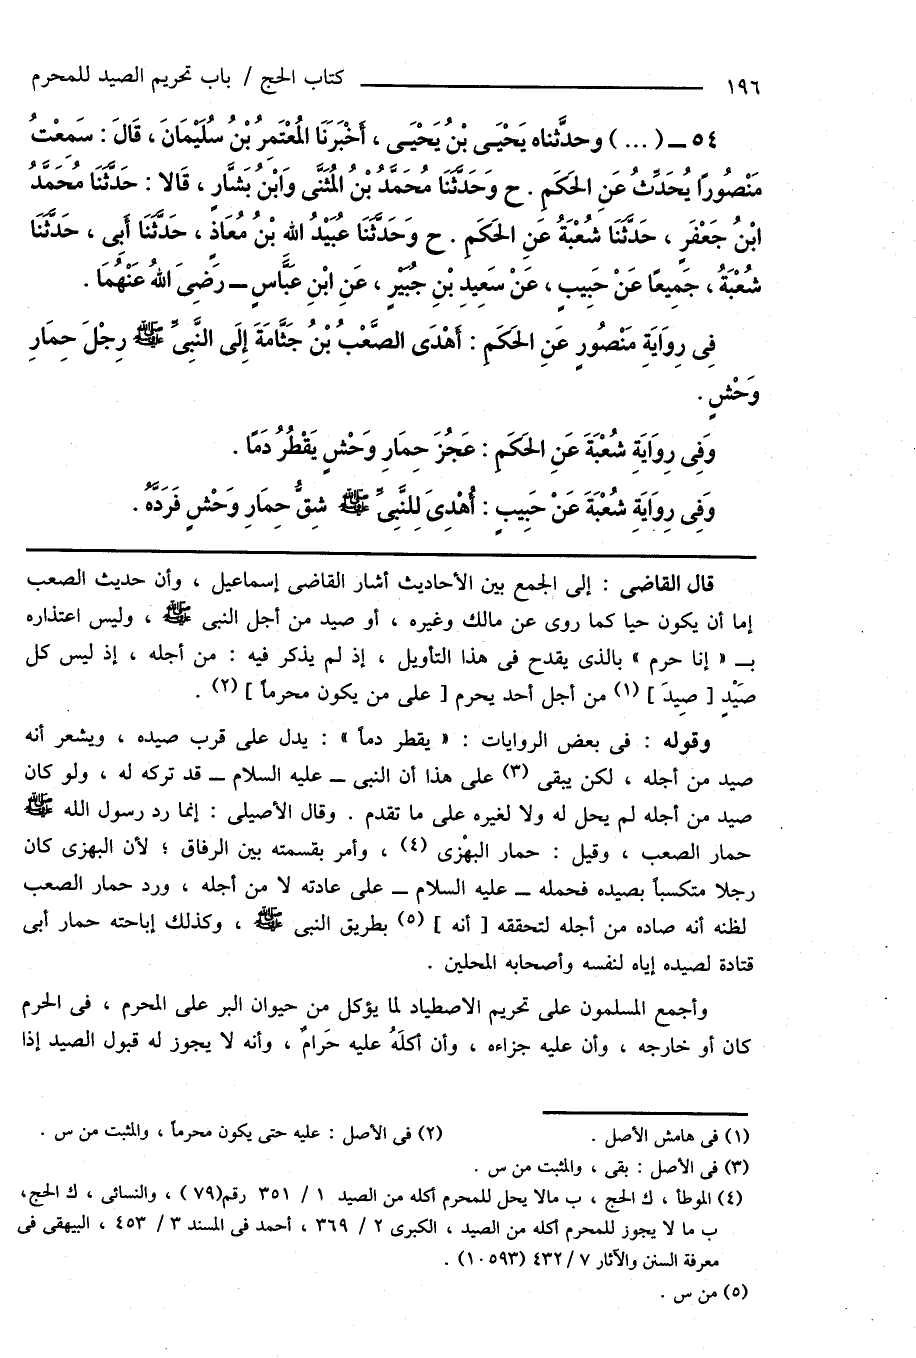 ١٩٦ ــــــ كتاب الحج / باب تحريم الصيد للمحرم
٥٤ ــ ( ... ) وحدثناه يَحْيَى بْنُ يَحْيَى ، أَخْبَرَنَا المُعْتَمِرُ بْنُ سُلَيْمَانَ ، قَالَ : سَمِعْتُ
مَنْصُورًا يُحَدِّثُ عَنِ الحَكَمِ . ح وَحَدَّثَنَا مُحَمَّدُ بْنُ المُثَنَّى وَابْنُ بَشَّارٍ ، قَالا : حَدَّثَنَا مُحَمَّدُ
ابْنُ جَعْفَرٍ ، حَدَّثَنَا شُعْبَةُ عَنِ الحَكَمِ . ح وَحَدَّثَنَا عُبَيْدُ الله بْنُ مُعَاذٍ ، حَدَّثَنَا أَبِى ، حَدَّثَنَا
شُعْبَةُ ، جَمِيعًا عَنْ حَبِيبٍ ، عَنْ سَعِيدِ بْنِ جُبَيْرٍ ، عَنِ ابْنِ عَبَّاسٍ ــ رَضِىَ اللهُ عَنْهُمَا .
فِى رِوَايَةِ مَنْصُورٍ عَنِ الحَكَمِ : أَهْدَى الصَّعْبُ بْنُ جَثَّامَةَ إِلَى النَّبِىِّ ﷺ رِجْلَ حِمَارِ
وَحْشٍ .
وَفِى رِوَايَةِ شُعْبَةَ عَنِ الحَكَمِ : عَجُزَ حِمَارِ وَحْشٍ يَقْطُرُ دَمًا .
وَفِى رِوَايَةِ شُعْبَةَ عَنْ حَبِيبٍ : أُهْدِىَ لِلنَّبِىِّ ﷺ شِقُّ حِمَارِ وَحْشٍ فَرَدَّهُ .
قال القاضى : إلى الجمع بين الأحاديث أشار القاضى إسماعيل ، وأن حديث الصعب
إما أن يكون حيا كما روى عن مالك وغيره ، أو صيد من أجل النبى ﷺ ، وليس اعتذاره
بـ « إنا حرم » بالذى يقدح فى هذا التأويل ، إذ لم يذكر فيه : من أجله ، إذ ليس كل
صَيْدٍ [ صِيدَ ] (١) من أجل أحد يحرم [ على من يكون محرماً ] (٢) .
وقوله : فى بعض الروايات : « يقطر دماً » : يدل على قرب صيده ، ويشعر أنه
صيد من أجله ، لكن يبقى (٣) على هذا أن النبى ــ عليه السلام ــ قد تركه له ، ولو كان
صيد من أجله لم يحل له ولا لغيره على ما تقدم . وقال الأصيلى : إنما رد رسول الله ﷺ
حمار الصعب ، وقيل : حمار البهْزى (٤) ، وأمر بقسمته بين الرفاق ؛ لأن البهزى كان
رجلا متكسباً بصيده فحمله ــ عليه السلام ــ على عادته لا من أجله ، ورد حمار الصعب
لظنه أنه صاده من أجله لتحققه [ أنه ] (٥) بطريق النبى ﷺ ، وكذلك إباحته حمار أبى
قتادة لصيده إياه لنفسه وأصحابه المحلين .
وأجمع المسلمون على تحريم الاصطياد لما يؤكل من حيوان البر على المحرم ، فى الحرم
كان أو خارجه ، وأن عليه جزاءه ، وأن أكلَهُ عليه حَرامٌ ، وأنه لا يجوز له قبول الصيد إذا
(١) فى هامش الأصل . (٢) فى الأصل : عليه حتى يكون محرماً ، والمثبت من س .
(٣) فى الأصل : بقى ، والمثبت من س .
(٤) الموطأ ، ك الحج ، ب مالا يحل للمحرم أكله من الصيد ١ / ٣٥١ رقم(٧٩ ) ، والنسائى ، ك الحج،
ب ما لا يجوز للمحرم أكله من الصيد ، الكبرى ٢ / ٣٦٩ ، أحمد فى المسند ٣ / ٤٥٣ ، البيهقى فى
معرفة السنن والآثار ٧ / ٤٣٢ (١٠٥٩٣) .
(٥) من س .